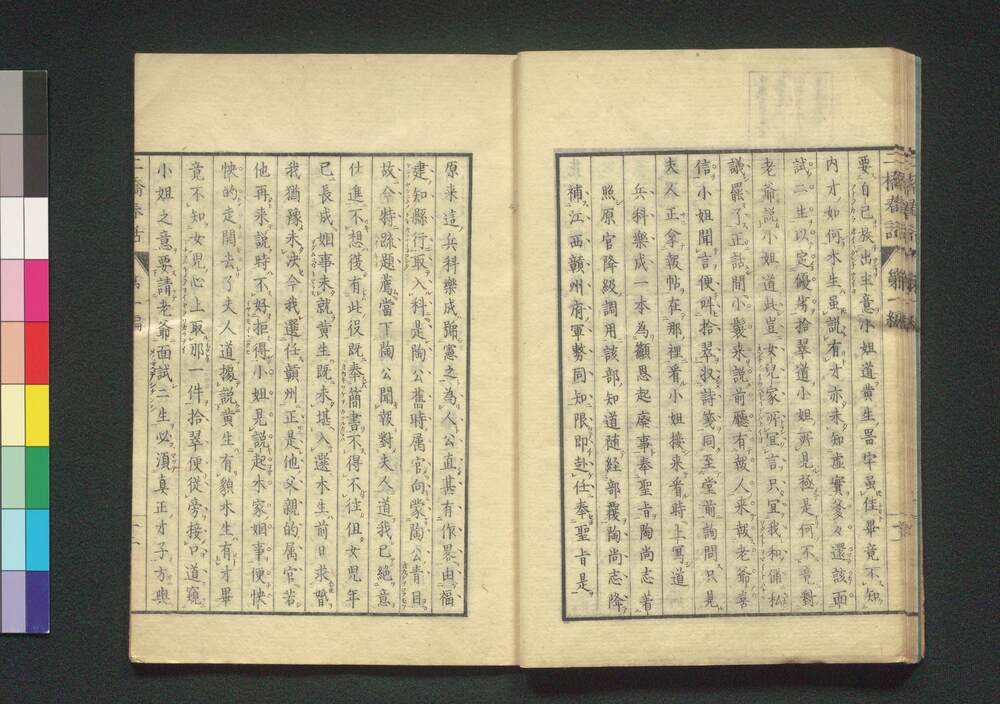 要自已旅出主意小姐道黄生器宇雖佳畢竟不知
内才如何木生雖説有才亦未知虚實爹々還該面
試二生以定優劣拾翠道小姐所見極是何不竟對
老爺説小姐道此豈女兒家所宜言只宜我和伱私
議罷了正話間小鬟来説前廳有報人来報老爺喜
信小姐聞言便叫拾翠収詩箋同至堂前詢問只見
夫人正拿報帖在那裡看小姐接来看時上寫道
兵科樂成一本為籲恩起廢事奉聖旨陶尚志着
照原官降級調用該部知道隨経部覆陶尚志降
補江西贛州府軍勢同知限即赴任奉聖旨是
原来這兵科樂成號憲之為人公直甚有作畧由福
建知縣行取入科是陶公舊時属官向蒙陶公青目
故今特疏題薦當下陶公聞報對夫人道我已絶意
仕進不想復有此役既奉簡書不得不往但女兒年
已長成姻事未就黄生既未堪入選木生前日求婚
我猶豫未决今我選任贛州正是他父親的属官若
他再来説時不好拒得小姐見説起木家姻事便怏怏
怏的走開去了夫人道據説黄生有貌木生有才畢
竟不知女兒心上取那一件拾翠便從旁接口道窺
小姐之意要請老爺面試二生必須真正才子方與